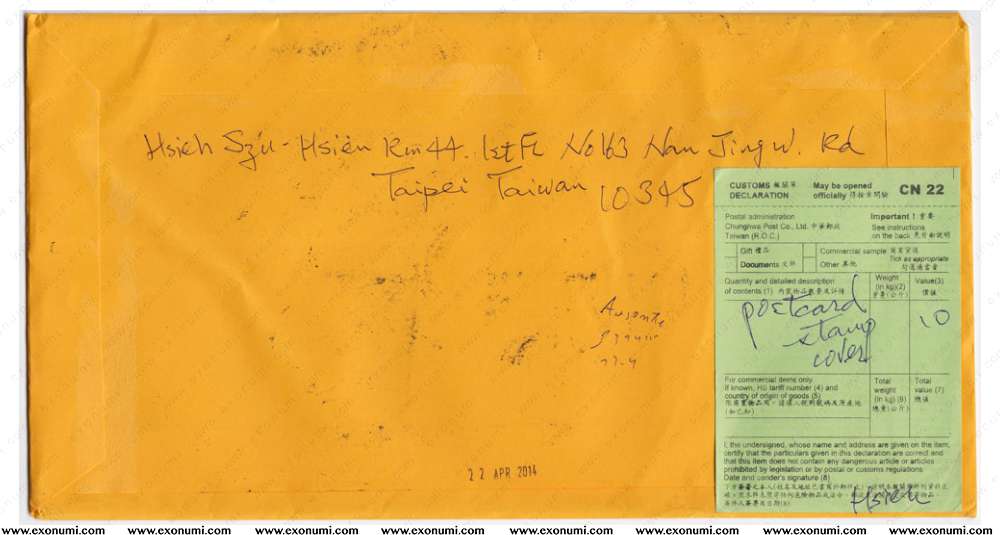 Hsieh Szu-Hsien Rm 44. 1st Fl No 163 Nan Jing W. Rd
Taipei Taiwan 10345
CUSTOMS 報關單
DECLARATION
May be opened
officially 得檢查開驗
CN 22
Postal administration
Chunghwa Post Co., Ltd. 中華郵政
Taiwan (R.O.C.)
Important ! 重要
See instructions
on the back 見背面說明
Gift 禮品
Commercial sample 商業貨樣
Documents 文件
Other 其他
Tick as appropriate
勾選適當者
Quantity and detailed description
of contents (1) 內裝物品數量及詳情
Weight
(in kg)(2)
重量(公斤)
Value(3)
價值
postcard
stamp
cover
10
For commercial items only
If known, HS tariff number (4) and
country of origin of goods (5)
Total
weight
(in kg) (6)
總重(公斤)
Total
value (7)
總值
I, the undersigned, whose name and address are given on the item,
certify that the particulars given in this declaration are correct and
that this item does not contain any dangerous article or articles
prohibited by legislation or by postal or customs regulations
Date and sender's signature (8)
Hsieh
22 APR 2014
www.exonumi.com www.exonumi.com www.exonumi.com www.exonumi.com www.exonumi.com www.exonumi.com www.exonumi.com